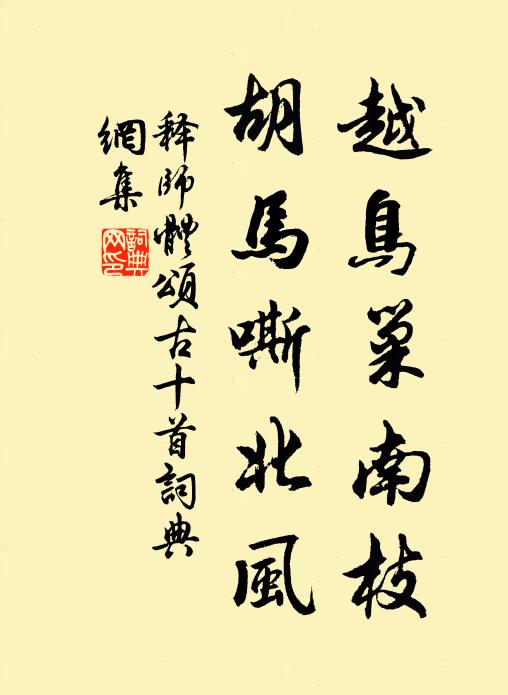 越鳥巢南枝
胡馬嘶北風
釋師體頌古十首詞典
網集
詞典
网印